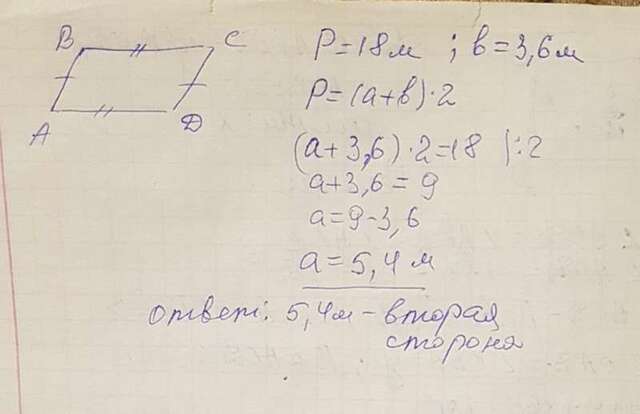 B C
A D
P=18м ; в=3,6м
P=(а+в)·2
(а+3,6)·2=18 |:2
а+3,6=9
а=9-3,6
а=5,4м
ответ: 5,4м-вторая
сторона